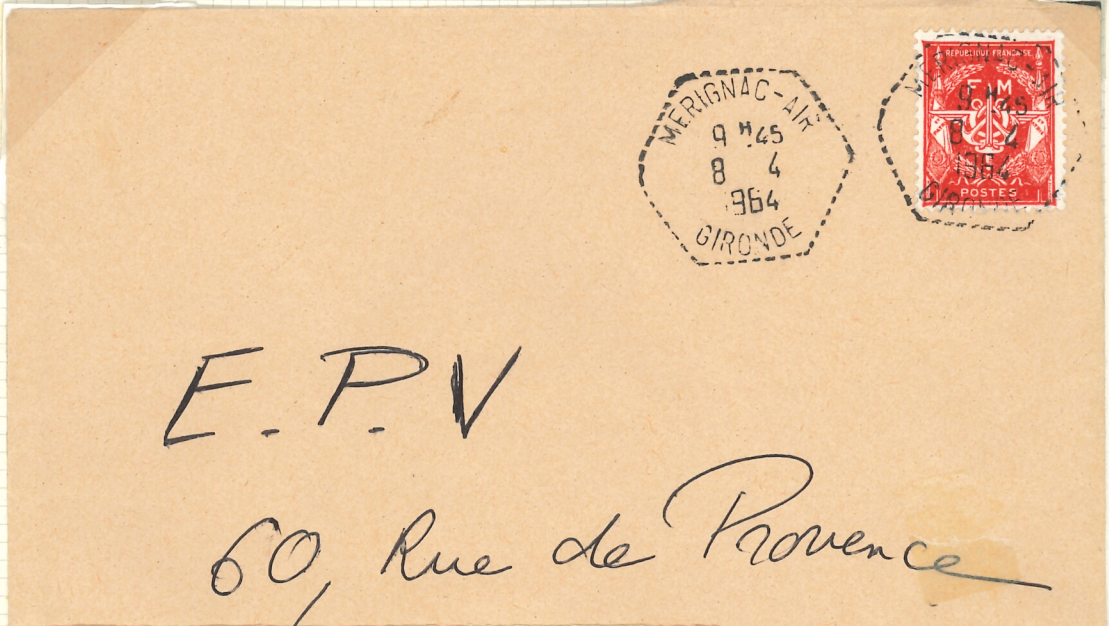 MERIGNAC-AIR
9 H 45
8 4
1964
GIRONDE
REPUBLIQUE FRANÇAISE
F M
POSTES
MERIGNAC-AIR
9 H 45
8 4
1964
GIRONDE
E.P.V
60, Rue de Provence